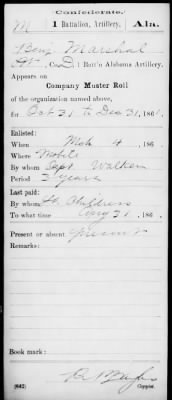 Confederate.
M 1 Battalion, Artillery, Ala.
Benj Marshal
Pvt, Co. D 1 Batt'n Alabama Artillery.
Appears on
Company Muster Roll
of the organization named above,
for Oct 31 to Dec 31, 186 .
Enlisted:
When Mch 4, 186 .
Where Mobile
By whom Capt. Walker
Period 3 years
Last paid:
By whom Childress
To what time Aug 31, 186 .
Present or absent Present
Remarks:
Book mark:
(642) Copyist.